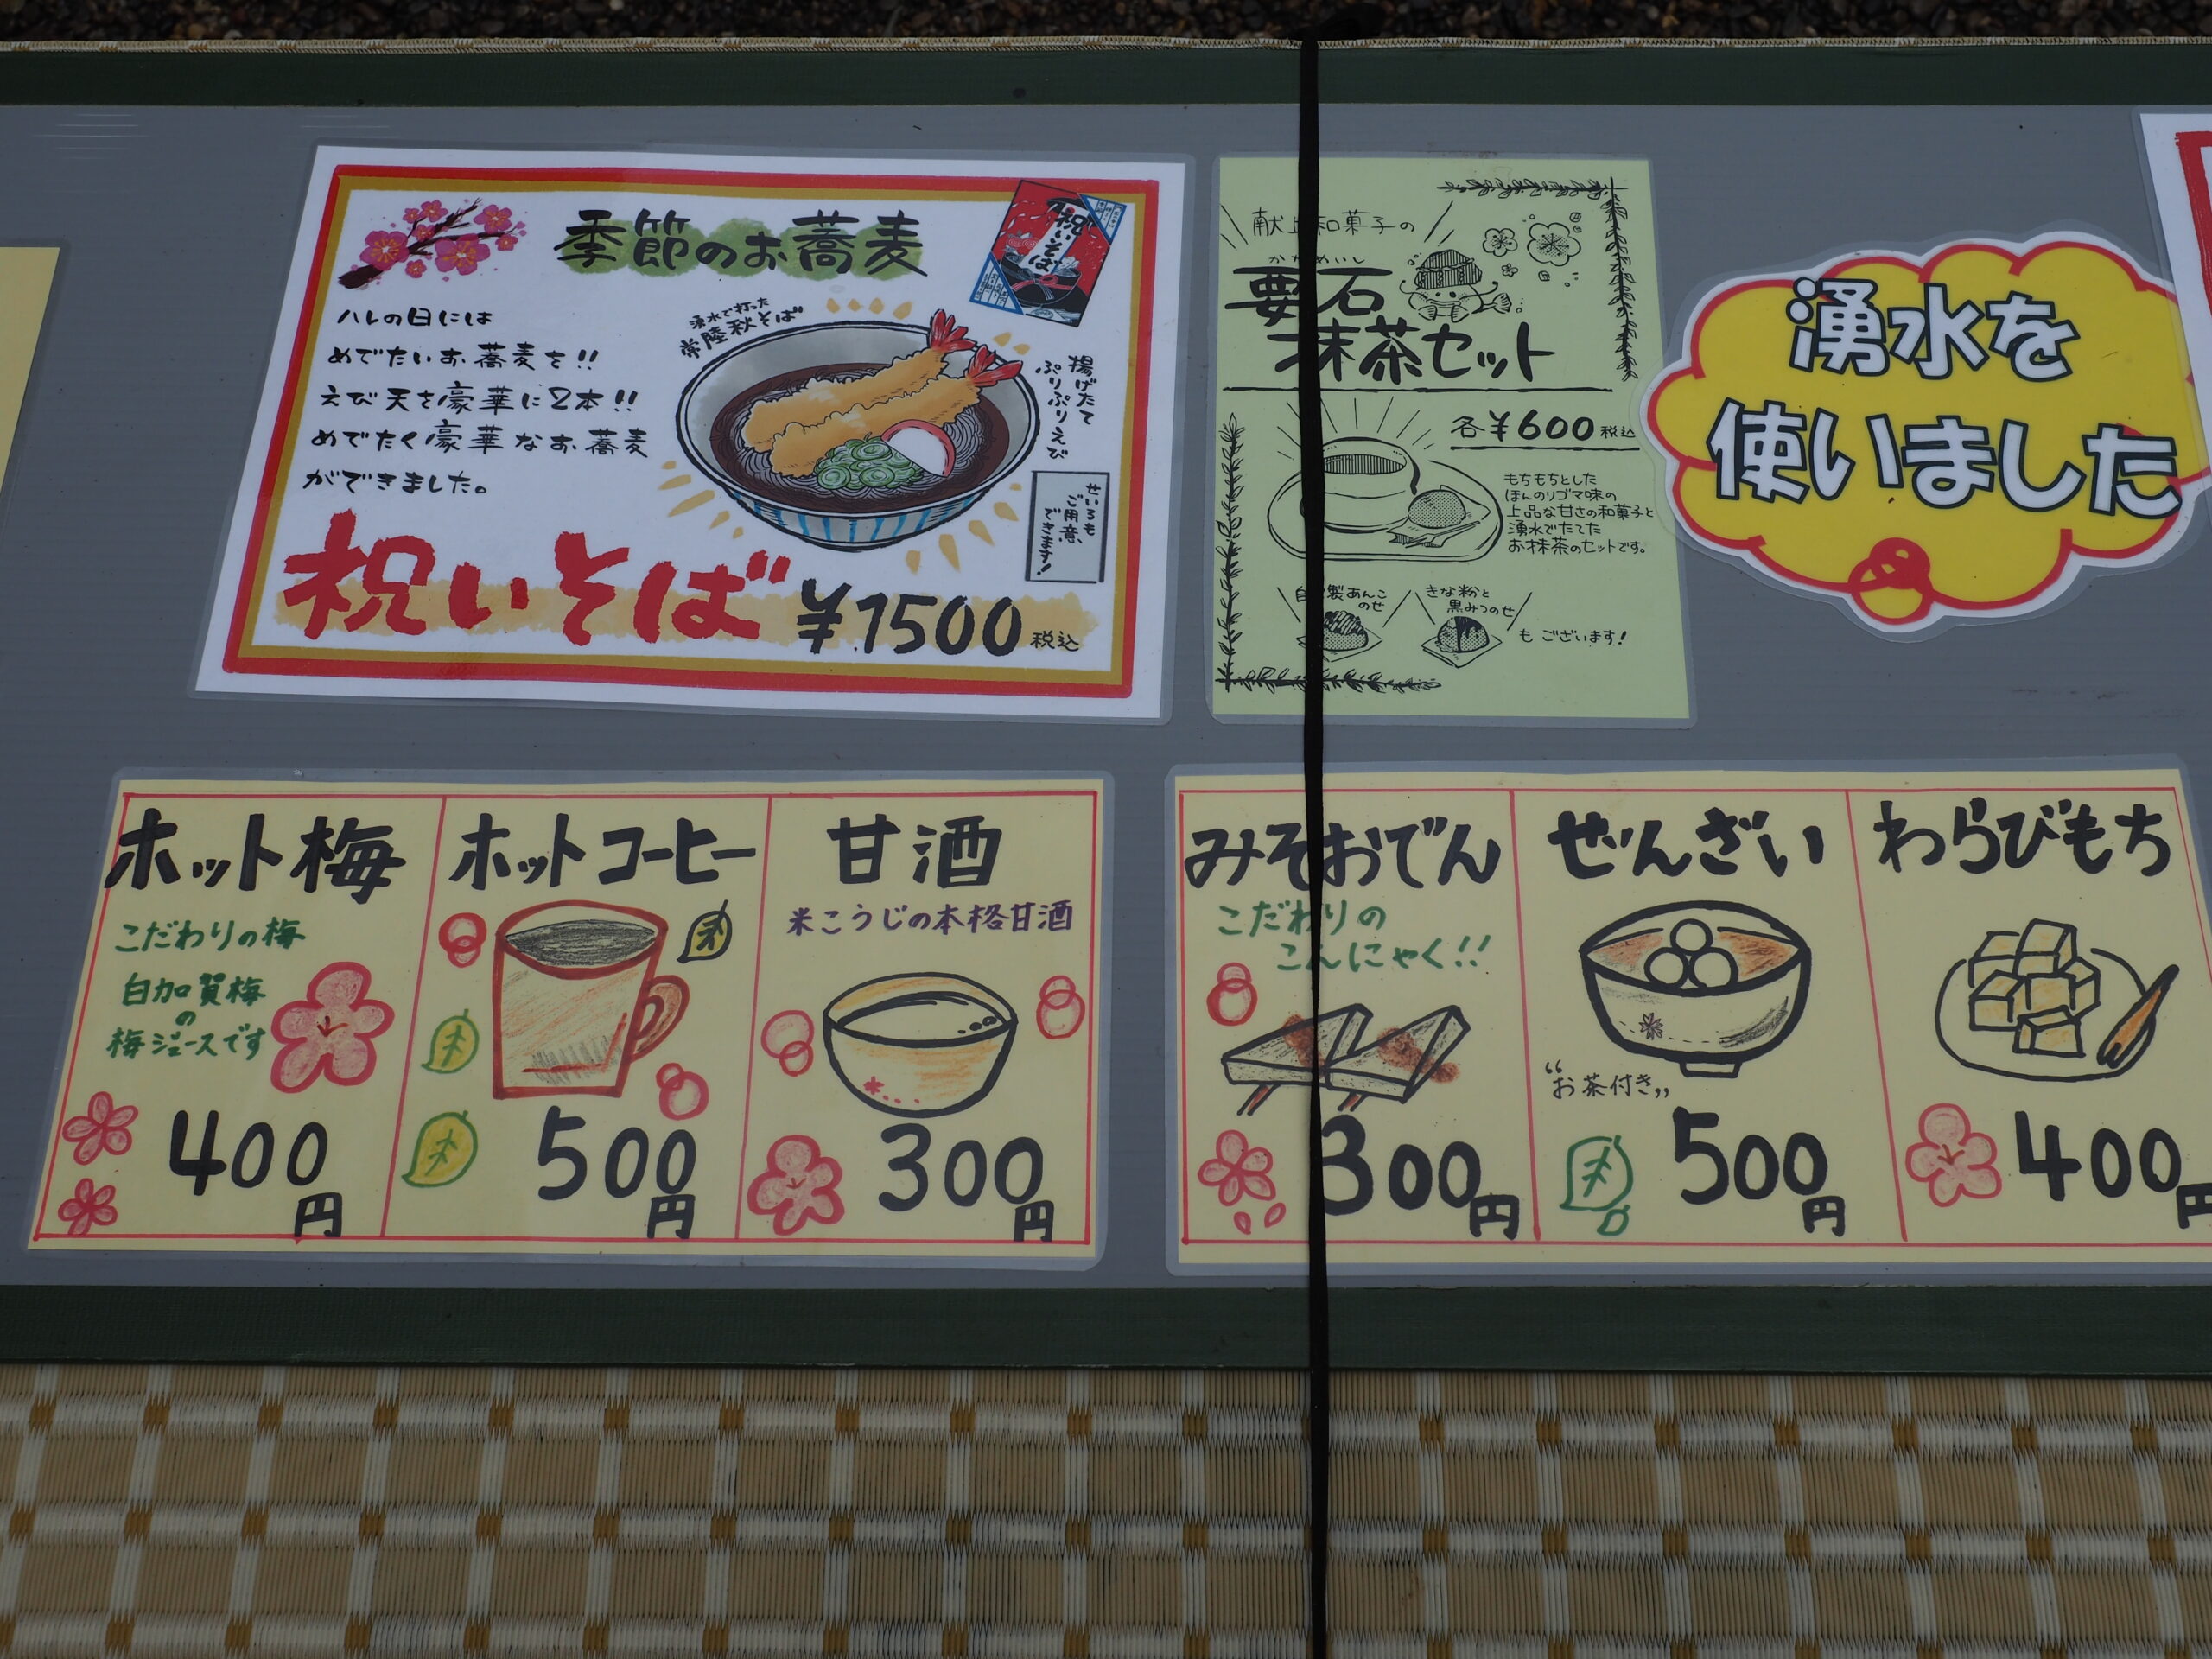 季節のお蕎麦
祝いそば
ハレの日には
めでたいお蕎麦を!!
えび天を豪華に2本!!
めでたく豪華なお蕎麦
ができました。
湧水で打った
常陸秋そば
揚げたて
ぷりぷりえび
せいろも
ご用意
できます!
祝いそば ¥1500 税込
献上和菓子の
かなめいし
要石
抹茶セット
各¥600 税込
もちもちとした
ほんのりゴマ味の
上品な甘さの和菓子と
湧水でたてた
お抹茶のセットです。
自家製あんこ
のせ
きな粉と
黒みつのせ
もございます!
湧水を
使いました
ホット梅
こだわりの梅
白加賀梅
の
梅ジュースです
400円
ホットコーヒー
500円
甘酒
米こうじの本格甘酒
300円
みそおでん
こだわりの
こんにゃく!!
300円
ぜんざい
“お茶付き„
500円
わらびもち
400円